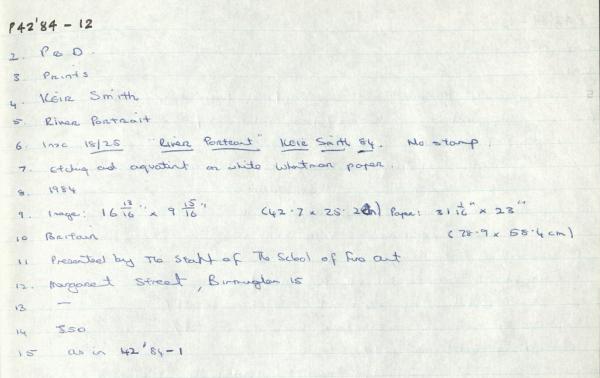 P42'84 - 12
2. P & D.
3 Prints
4. Keir Smith
5. River Portrait
6. Insc 18/25 "River Portrait" Keir Smith 84. No stamp.
7. etching and aquatint on white Whatman paper.
8. 1984
9. Image: 16 13/16" x 9 15/16" (42.7 x 25.2cm) Paper: 31 1/16" x 23"
10 Britain (78.9 x 58.4cm)
11 Presented by The Staff of The School of Fine art
12. Margaret Street, Birmingham 15
13 —
14 £50
15 as in 42'84-1